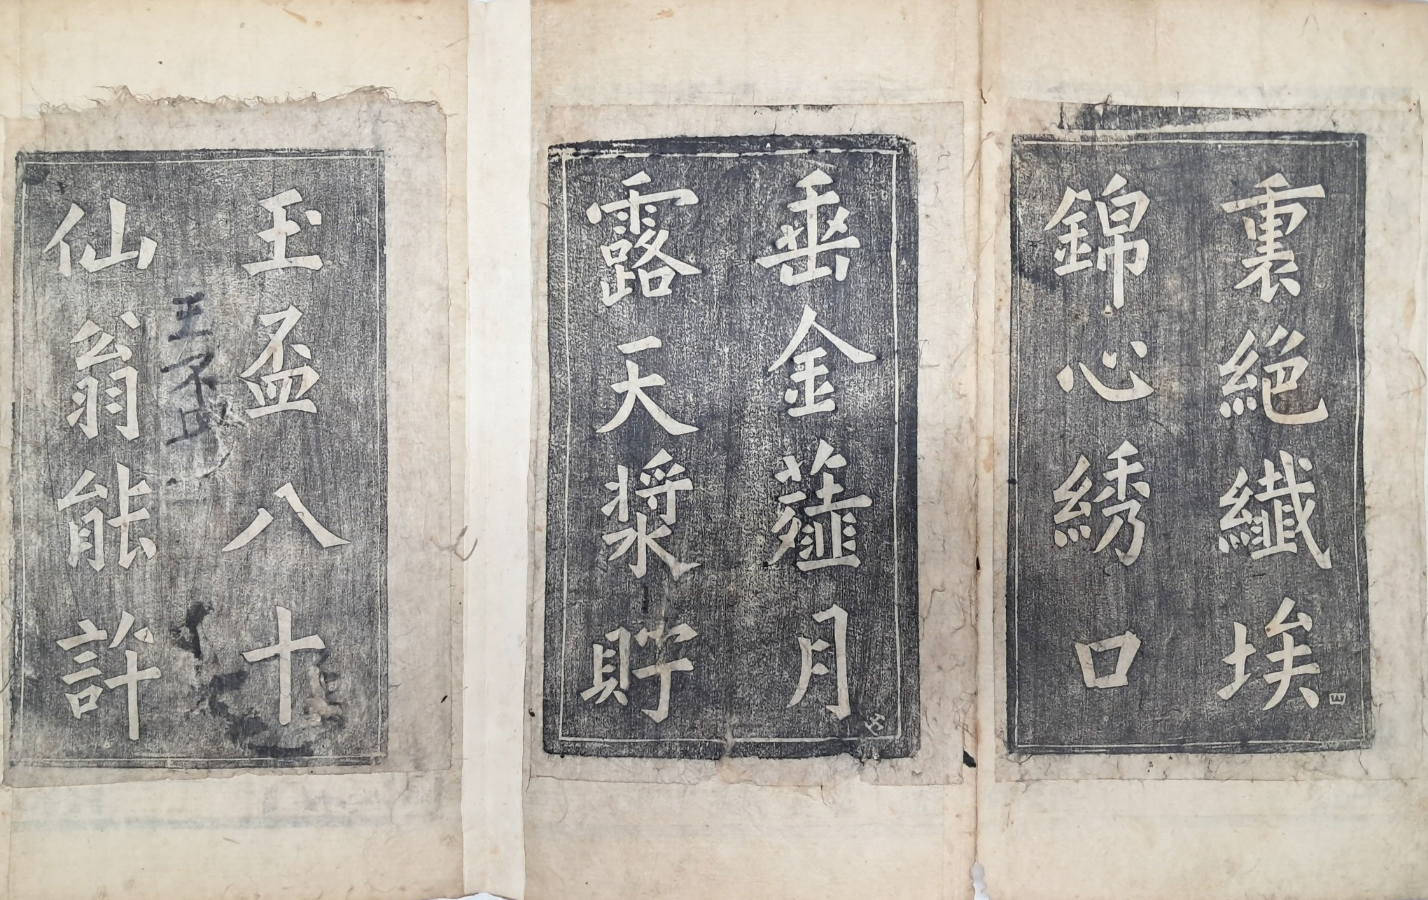 裏絶纖埃
四
錦心綉口
垂金薤月
五
露天漿貯
玉盃八十
仙翁能許